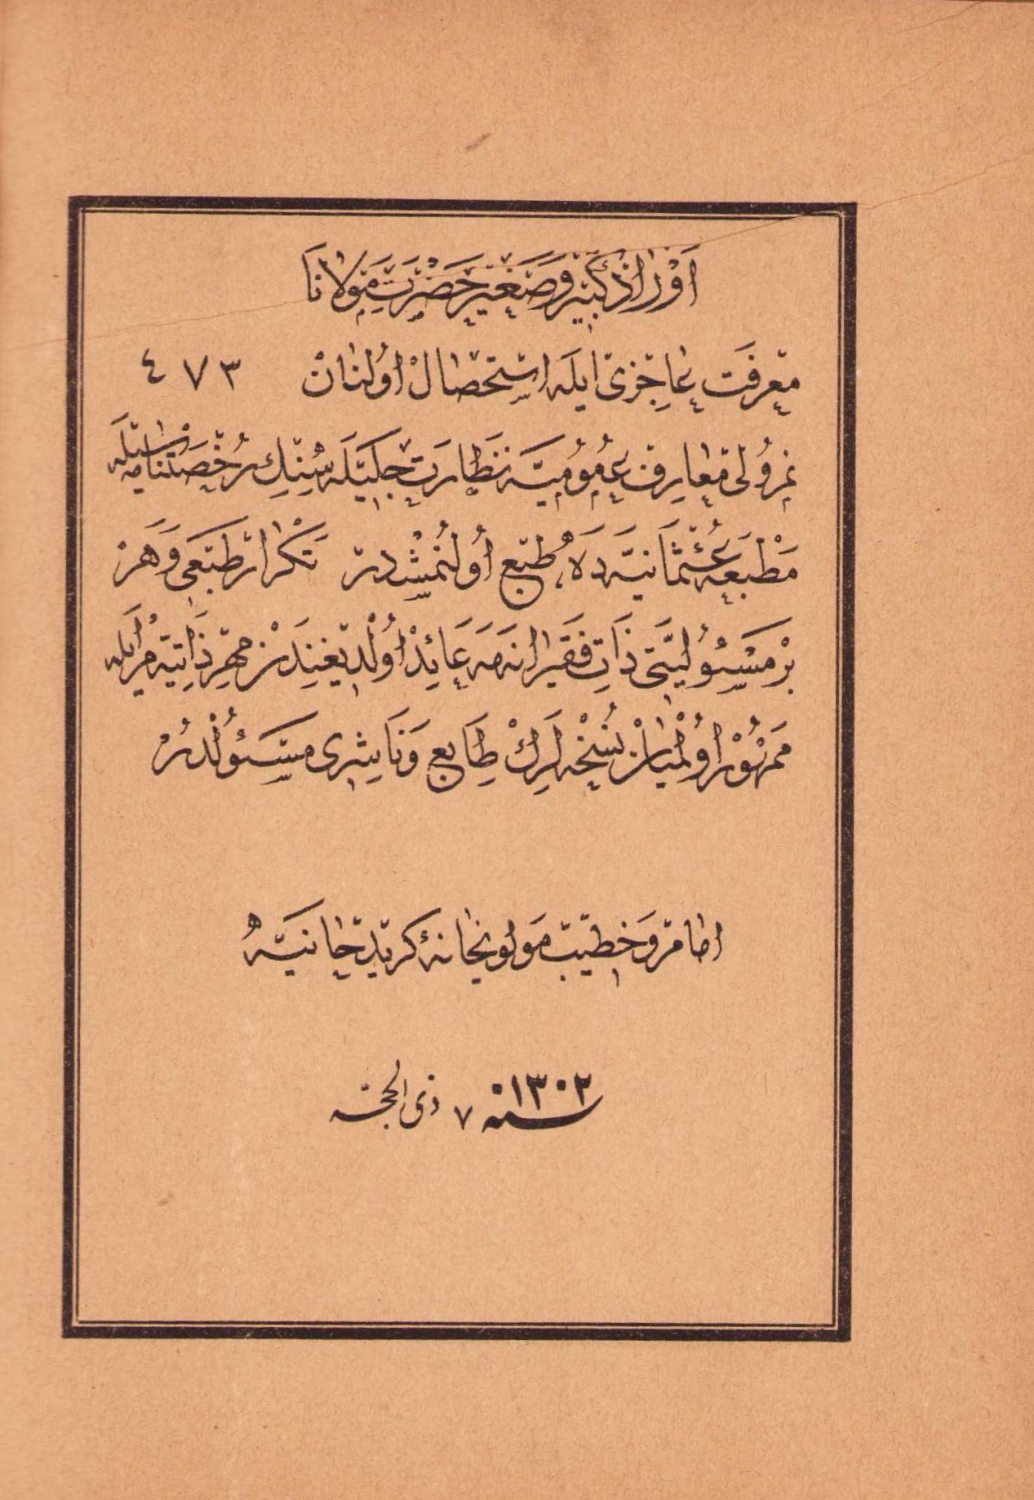 اَوْرَادِ كَبِيرْ وَصَغِيرِ حَضْرَتِ مَوْلَانَا
مَعْرِفَت عَاجِزِى ايلَه اِسْتِحْصَالْ اُولُنَانْ ٤٧٣
نُمْرُولِى مَعَارِفِ عُمُومِيَّه نَظَارَتِ جَلِيلَه سِنِكْ رُخْصَتْنَامَه سِيلَه
مَطْبَعَهٔ عُثْمَانِيَّه دَه طَبْع اُولُنْمُشْدِرْ تَكْرَارْ طَبْعِى وَهَرْ
بِرْ مَسْئُولِيَّتِى ذَاتِ فَقِيرَانَه مَه عَائِدْ اُولْدِيغِنْدَنْ مُهْرِ ذَاتِيَه مْ ايلَه
مَمْهُورْ اُولْمَيَانْ نُسْخَه لَرِكْ طَابِع وَنَاشِرِى مَسْئُولْدُرْ
امَام وَخَطِيبِ مَولَويخَانَهٔ كريد خَانيَه
سنه ١٣٠٢ ٧ ذى الحجه